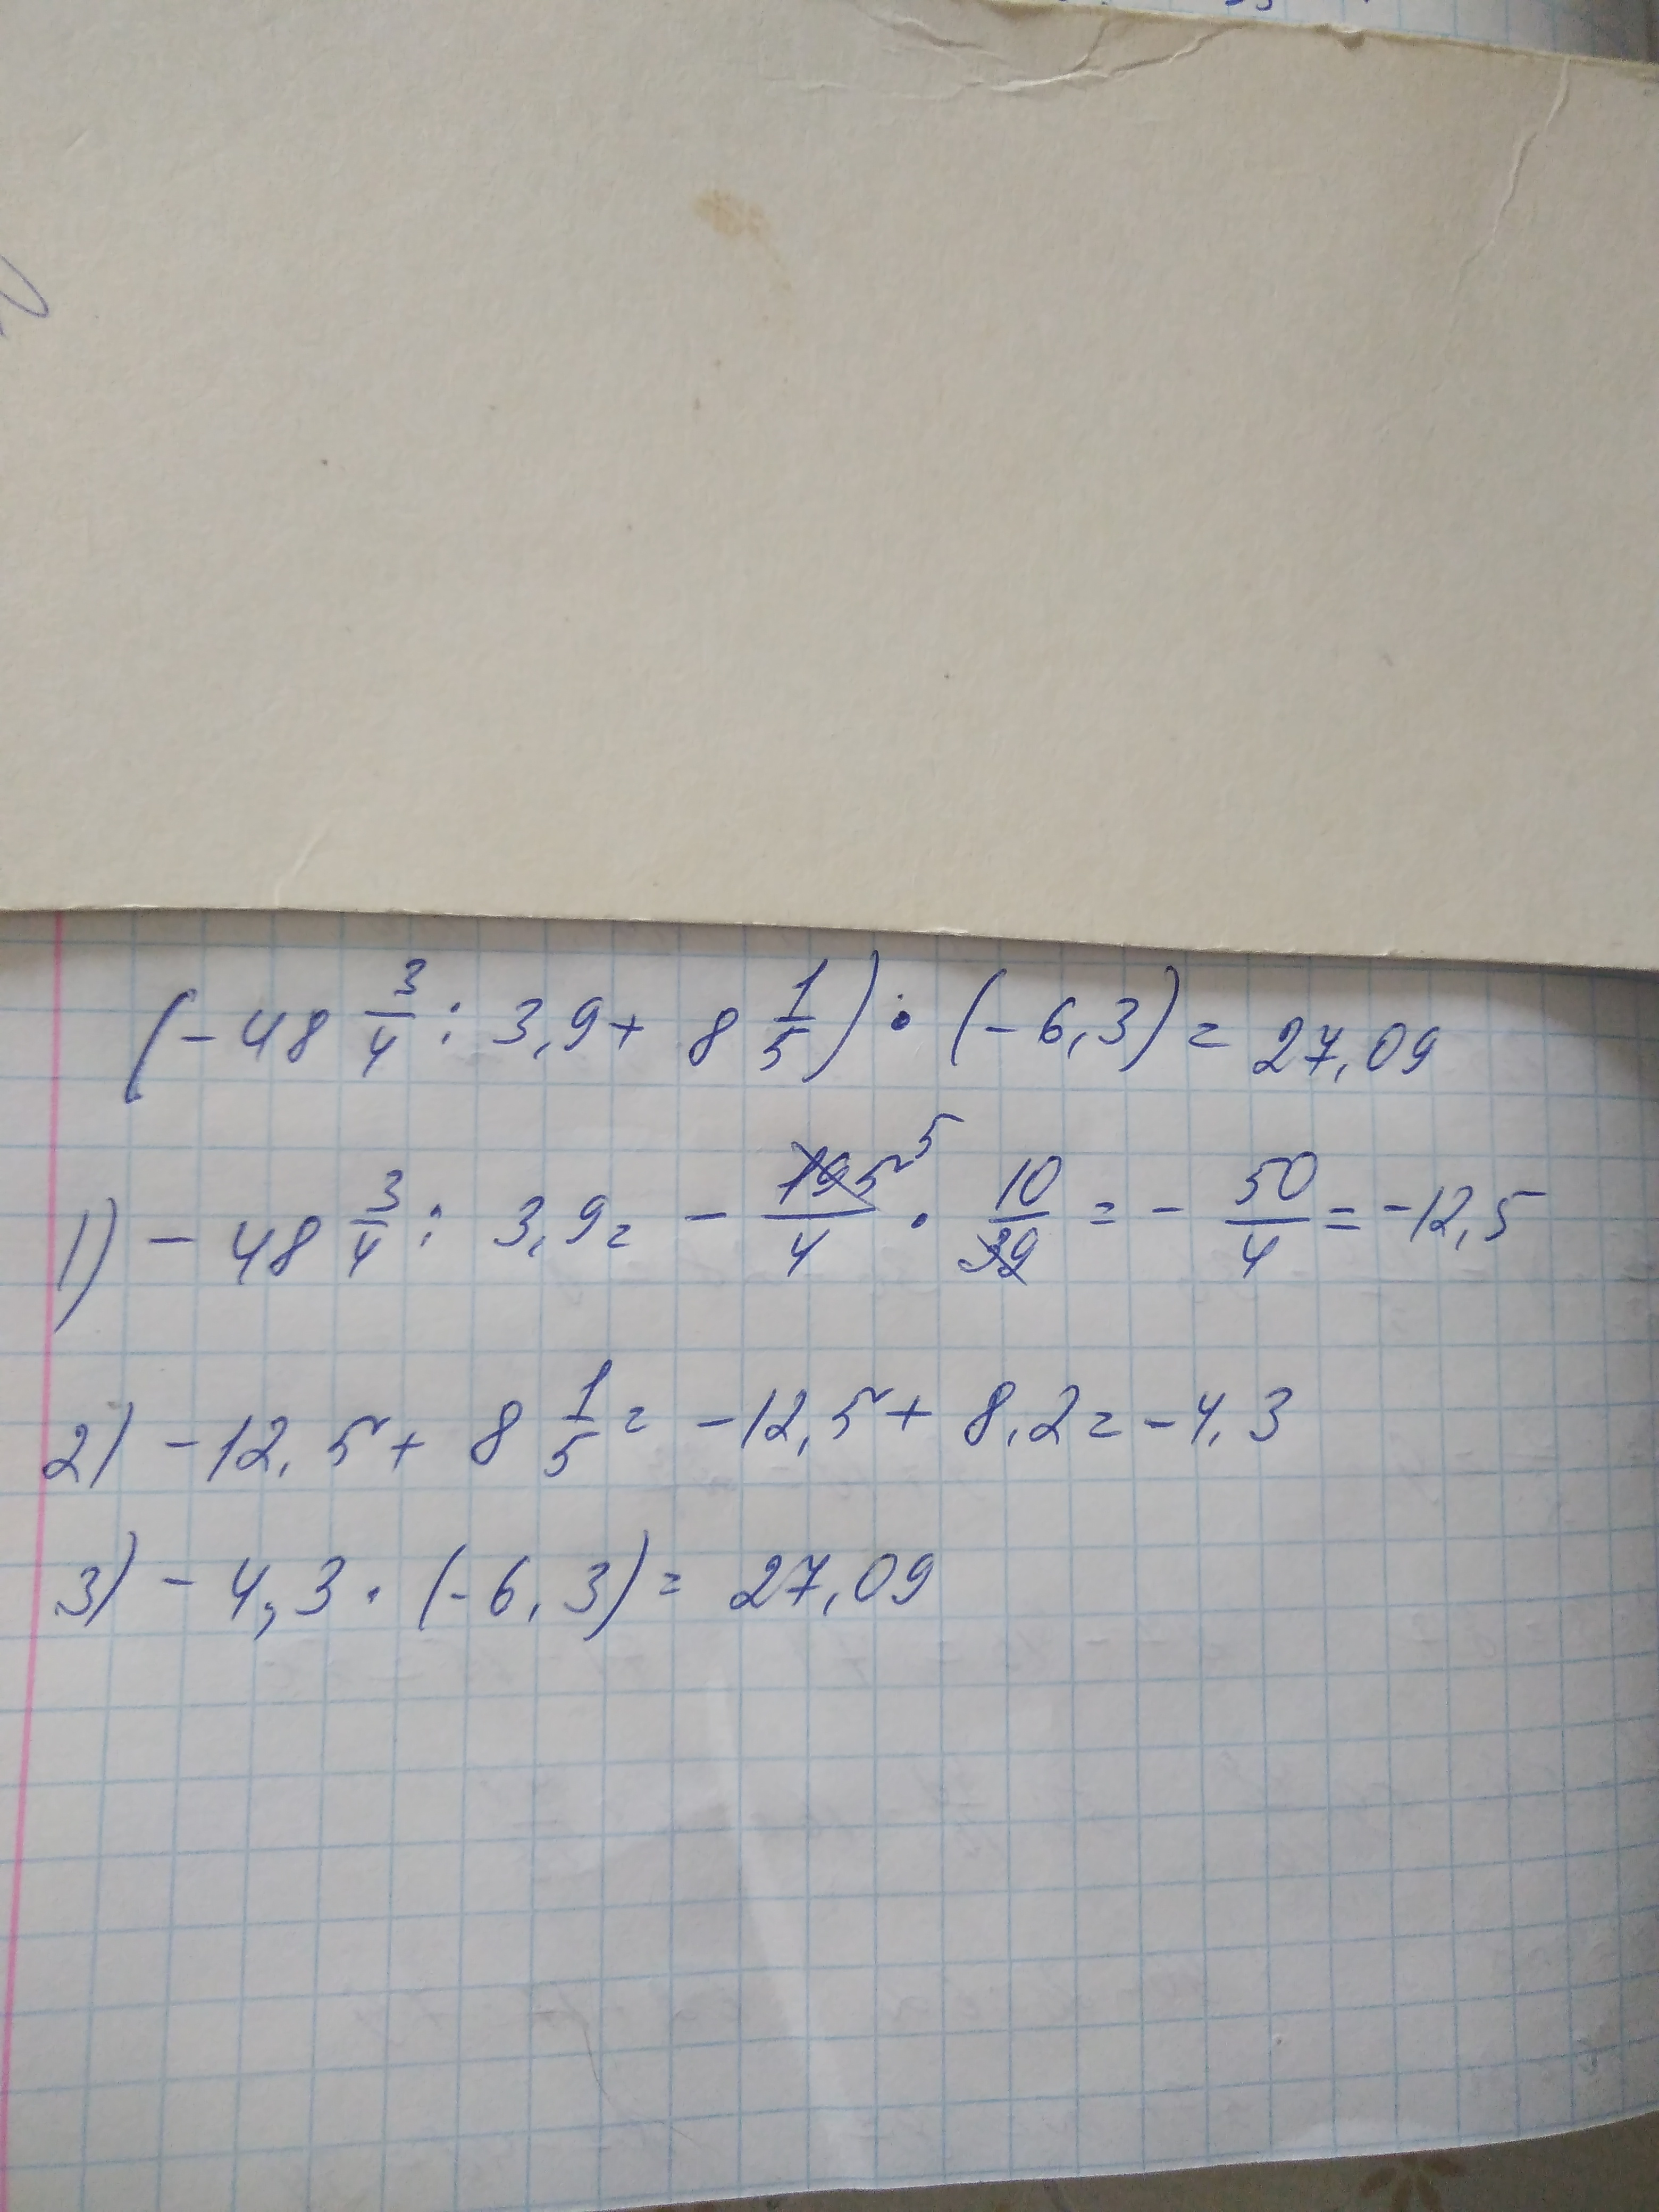 (-48 3/4 : 3,9 + 8 1/5) · (-6,3) = 27,09
1) -48 3/4 : 3,9 = - 195/4 5 · 10/39 = - 50/4 = -12,5
2) -12,5 + 8 1/5 = -12,5 + 8,2 = -4,3
3) -4,3 · (-6,3) = 27,09